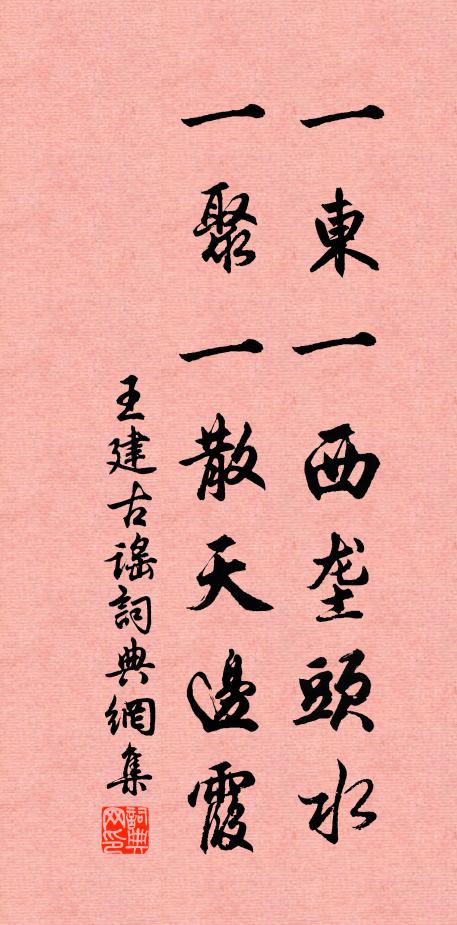 一東一西垄頭水
一聚一散天邊霞
王建古謠詞典網集
詞典網印